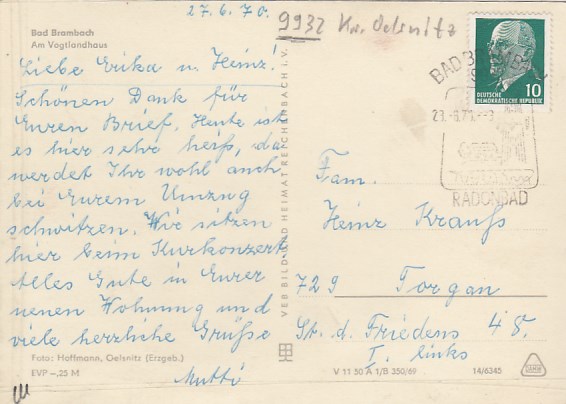 27.6.70.
9932 Kr. Oelsnitz
Bad Brambach
Am Vogtlandhaus
Liebe Erika u. Heinz!
Schönen Dank für
Euren Brief. Heute ist
es hier sehr heiß, da
werdet Ihr wohl auch
bei Eurem Umzug
schwitzen. Wir sitzen
hier beim Kurkonzert
Alles Gute in Eurer
neuen Wohnung und
viele herzliche Grüße
Mutti
Foto: Hoffmann, Oelsnitz (Erzgeb.)
EVP –,25 M
VEB BILD UND HEIMAT REICHENBACH i. V.
DEUTSCHE
DEMOKRATISCHE REPUBLIK
10
BAD
RADONBAD
Fam.
Heinz Krauß
729 Torgau
Str. d. Friedens 48
I. links
V 11 50 A 1/B 350/69
14/6345